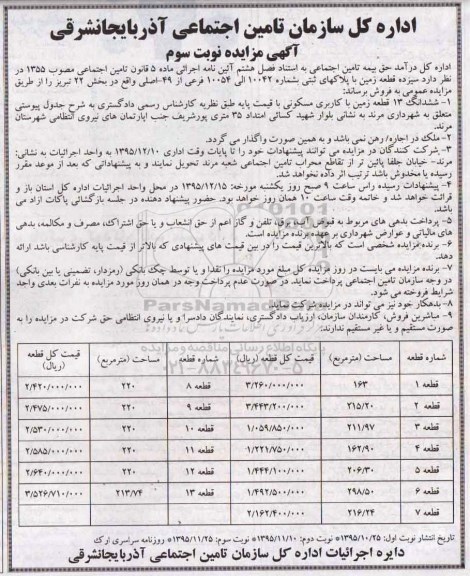 اداره کل سازمان تامین اجتماعی آذربایجانشرقی
آگهی مزایده نوبت سوم
اداره کل درآمد حق بیمه تامین اجتماعی به استناد فصل هشتم آئین نامه اجرائی ماده ۵ قانون تامین اجتماعی مصوب ۱۳۵۵ در
نظر دارد سیزده قطعه زمین با پلاکهای ثبتی بشماره ۱۰۰۴۲ الی ۱۰۰۵۴ فرعی از ۴۹-اصلی واقع در بخش ۲۲ تبریز را از طریق
مزایده عمومی به فروش برساند:
۱- ششدانگ ۱۳ قطعه زمین با کاربری مسکونی با قیمت پایه طبق نظریه کارشناس رسمی دادگستری به شرح جدول پیوستی
متعلق به شهرداری مرند به نشانی بلوار شهید کسائی امتداد ۳۵ متری پورشریف جنب آپارتمان های نیروی انتظامی شهرستان
مرند.
۲- ملک در اجاره/ رهن نمی باشد و به همین صورت واگذار می گردد.
۳- شرکت کنندگان در مزایده می توانند پیشنهادات خود را تا پایان وقت اداری ۱۳۹۵/۱۲/۱۰ به واحد اجرائیات به نشانی:
مرند- خیابان جلفا پائین تر از تقاطع محراب تامین اجتماعی شعبه مرند تحویل نمایند و به پیشنهاداتی که بعد از موعد مقرر
رسیده یا مخدوش باشد ترتیب اثر داده نخواهد شد.
۴- پیشنهادات رسیده راس ساعت ۹ صبح روز یکشنبه مورخه: ۱۳۹۵/۱۲/۱۵ در محل واحد اجرائیات اداره کل استان باز و
قرائت خواهد شد و خاتمه وقت ساعت ۱۰ همان روز خواهد بود. حضور پیشنهاد دهنده در جلسه بازگشائی پاکات آزاد می
باشد.
۵- پرداخت بدهی های مربوط به قبوض آب، برق، تلفن و گاز اعم از حق انشعاب و یا حق اشتراک، مصرف و مکالمه، بدهی
های مالیاتی و عوارض شهرداری بر عهده برنده مزایده است.
۶- برنده مزایده شخصی است که بالاترین قیمت را در بین قیمت های پیشنهادی که بالاتر از قیمت پایه کارشناسی باشد ارائه
دهد.
۷- برنده مزایده می بایست در روز مزایده کل مبلغ مورد مزایده را نقدا و یا توسط چک بانکی (رمزدار، تضمینی یا بین بانکی)
در وجه سازمان تامین اجتماعی پرداخت نماید. در صورت عدم پرداخت وجه در همان روز مورد مزایده به نفرات بعدی واجد
شرایط فروخته می شود.
۸- بدهکار خود نیز می تواند در مزایده شرکت نماید.
۹- مباشرین فروش، کارمندان سازمان، ارزیاب دادگستری، نمایندگان دادسرا و یا نیروی انتظامی حق شرکت در مزایده را به
صورت مستقیم و یا غیر مستقیم ندارند:
شماره قطعه | مساحت (مترمربع) | قیمت کل قطعه (ریال) | شماره قطعه | مساحت (مترمربع) | قیمت کل قطعه (ریال)
قطعه ۱ | ۱۶۳ | ۳/۲۶۰/۰۰۰/۰۰۰ | قطعه ۸ | ۲۲۰ | ۲/۴۲۰/۰۰۰/۰۰۰
قطعه ۲ | ۲۱۵/۲۰ | ۳/۴۴۳/۲۰۰/۰۰۰ | قطعه ۹ | ۲۲۰ | ۲/۴۷۵/۰۰۰/۰۰۰
قطعه ۳ | ۲۱۱/۹۷ | ۱/۰۵۹/۸۵۰/۰۰۰ | قطعه ۱۰ | ۲۲۰ | ۲/۵۳۰/۰۰۰/۰۰۰
قطعه ۴ | ۱۶۲/۹۰ | ۱/۲۲۱/۷۵۰/۰۰۰ | قطعه ۱۱ | ۲۲۰ | ۲/۵۸۵/۰۰۰/۰۰۰
قطعه ۵ | ۲۰۶/۳۰ | ۱/۴۴۴/۱۰۰/۰۰۰ | قطعه ۱۲ | ۲۲۰ | ۲/۶۴۰/۰۰۰/۰۰۰
قطعه ۶ | ۲۹۸/۵۰ | ۱/۴۹۲/۵۰۰/۰۰۰ | قطعه ۱۳ | ۲۱۳/۷۴ | ۳/۵۲۶/۷۱۰/۰۰۰
قطعه ۷ | ۲۱۶/۲۴ | ۲/۱۶۲/۴۰۰/۰۰۰
تاریخ انتشار نوبت اول: ۱۳۹۵/۱۰/۲۵* نوبت دوم: ۱۳۹۵/۱۱/۱۰* نوبت سوم: ۱۳۹۵/۱۱/۲۵* روزنامه سراسری ارک
دایره اجرائیات اداره کل سازمان تامین اجتماعی آذربایجانشرقی